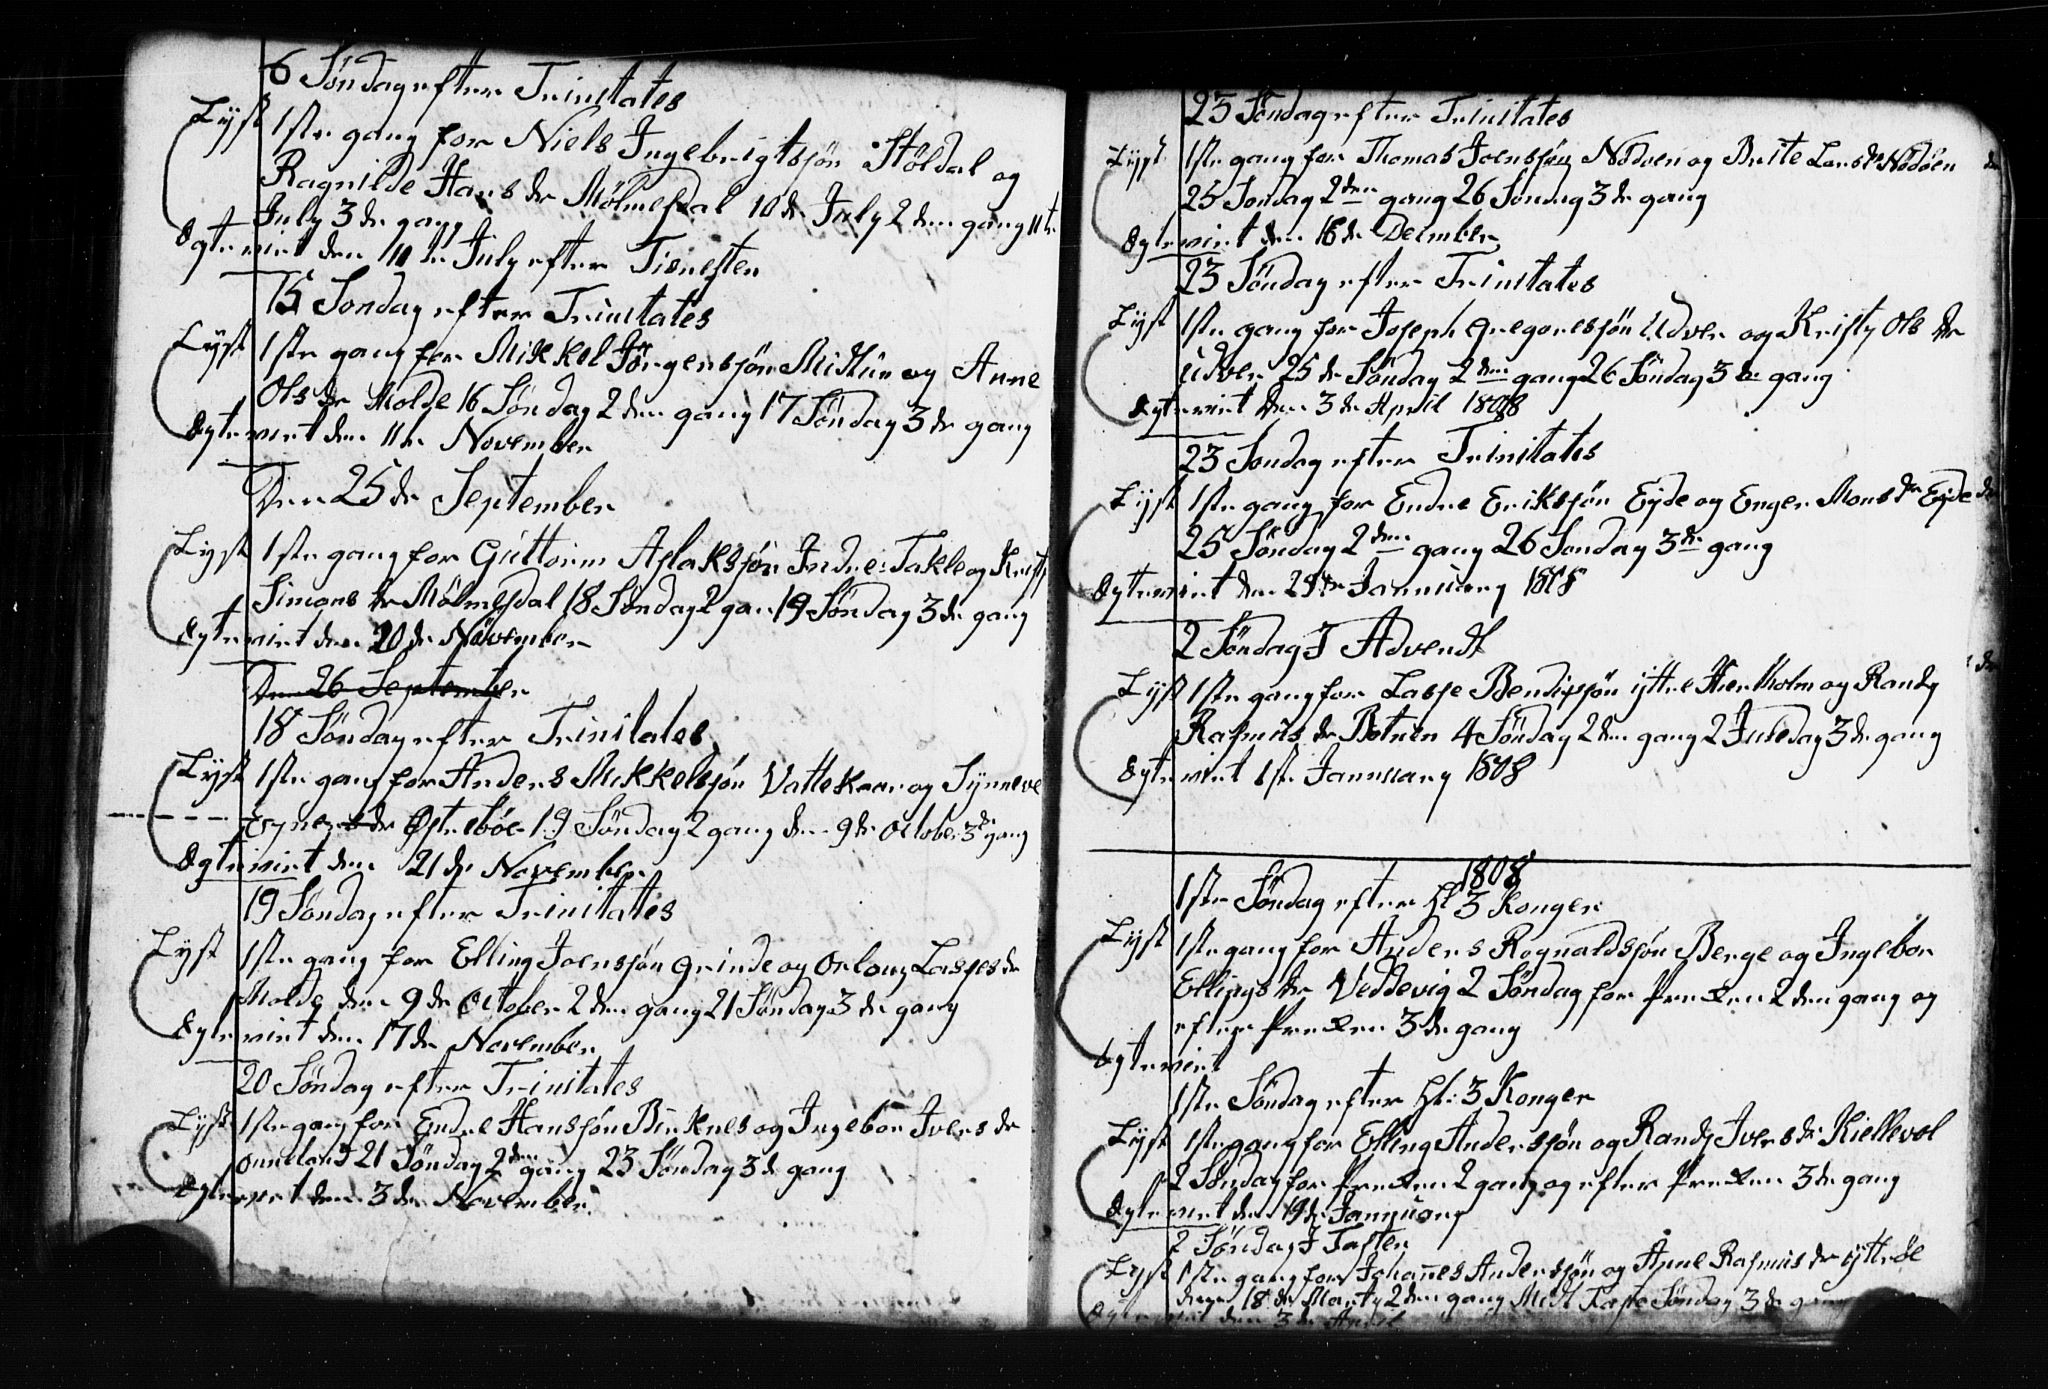 6 Søndag efter Trinitates
Lyst 1ste gang for Niels Ingebrigtsøn Støldal og
Ragnilde Hans dr Mølmesdal 10de July 2den gang 11te
July 3de gang
Ægtevirt den 11te July efter Tienesten
15 Sondag efter Trinitates
Lyst 1ste gang for Mikkel Jørgensøn Mistun og Anne
Ols dr Molde 16 Søndag 2den gang 17 Søndag 3de gang
Ægtevirt den 11te November
Den 25de September
Lyst 1ste gang for Guttorm Aslaksøn Indre Takle og Kristj
Simons dr Mølmesdal 18 Søndag 2 gan 19 Søndag 3de gang
Ægtevirt den 20de November
Den 26 September
18 Søndag efter Trinitates
Lyst 1ste gang for Anders Mikkelsøn Vattekaar og Synneve
dr Østrebøe 19 Søndag 2 gang den 9de October 3de gang
Ægtevirt den 21de November
19 Søndag efter Trinitates
Lyst 1ste gang for Elling Joensøn Grinde og Orlong Lasses dr
Molde den 9de October 2den gang 21 Søndag 3de gang
Ægtevirt den 17de November
20 Søndag efter Trinitates
Lyst 1ste gang for Endre Hansøn Birknes og Ingebor Ivers dr
Onneland 21 Søndag 2den gang 23 Søndag 3de gang
Ægtevirt den 3de November
23 Søndag efter Trinitates
Lyst 1ste gang for Thomas Joensøn Nødøen og Brite Lars dr Nødøen
25 Søndag 2den gang 26 Søndag 3de gang
Ægtevirt den 16de Decmber
23 Søndag efter Trinitates
Lyst 1ste gang for Joseph Gregoriesøn Udvær og Kristj Ols dr
Udvær 25de Søndag 2den gang 26 Søndag 3de gang
Ægtevirt den 3de April 1808
23 Søndag efter Trinitates
Lyst 1ste gang for Endre Eriksøn Eyde og Enger Mons dr Eyde
25 Søndag 2den gang 26 Søndag 3de gang
Ægtevirt den Jannuary 1808
2 Søndag I Advendt
Lyst 1ste gang for Lasse Bendixsøn yttre Hiertholm og Randj
Rasmus dr Botnen 4 Søndag 2den gang 2 Juledag 3de gang
Ægtevirt 1ste Jannuary 1808
1808
1ste Søndag efter Hl 3 Konger
Lyst 1ste gang for Anders Rognaldsøn Berge og Ingebor
Ellings dr Veddevig 2 Søndag for Preken 2den gang og
efter Preken 3de gang
Ægtevirt
1ste Søndag efter Hl: 3 Konger
Lyst 1ste gang for Elling Andersøn og Randj Ivers dr Kiellevol
2 Søndag for Preken 2 gang og efter Preken 3de gang
Ægtevirt den 19de Jannuary
2 Søndag I Fasten
Lyst 1ste gang for Johannes Andersøn og Anne Rasmus dr
den 18de Marty 2den gang Midt Faste Søndag 3de gang
Ægtevirt den 3de April